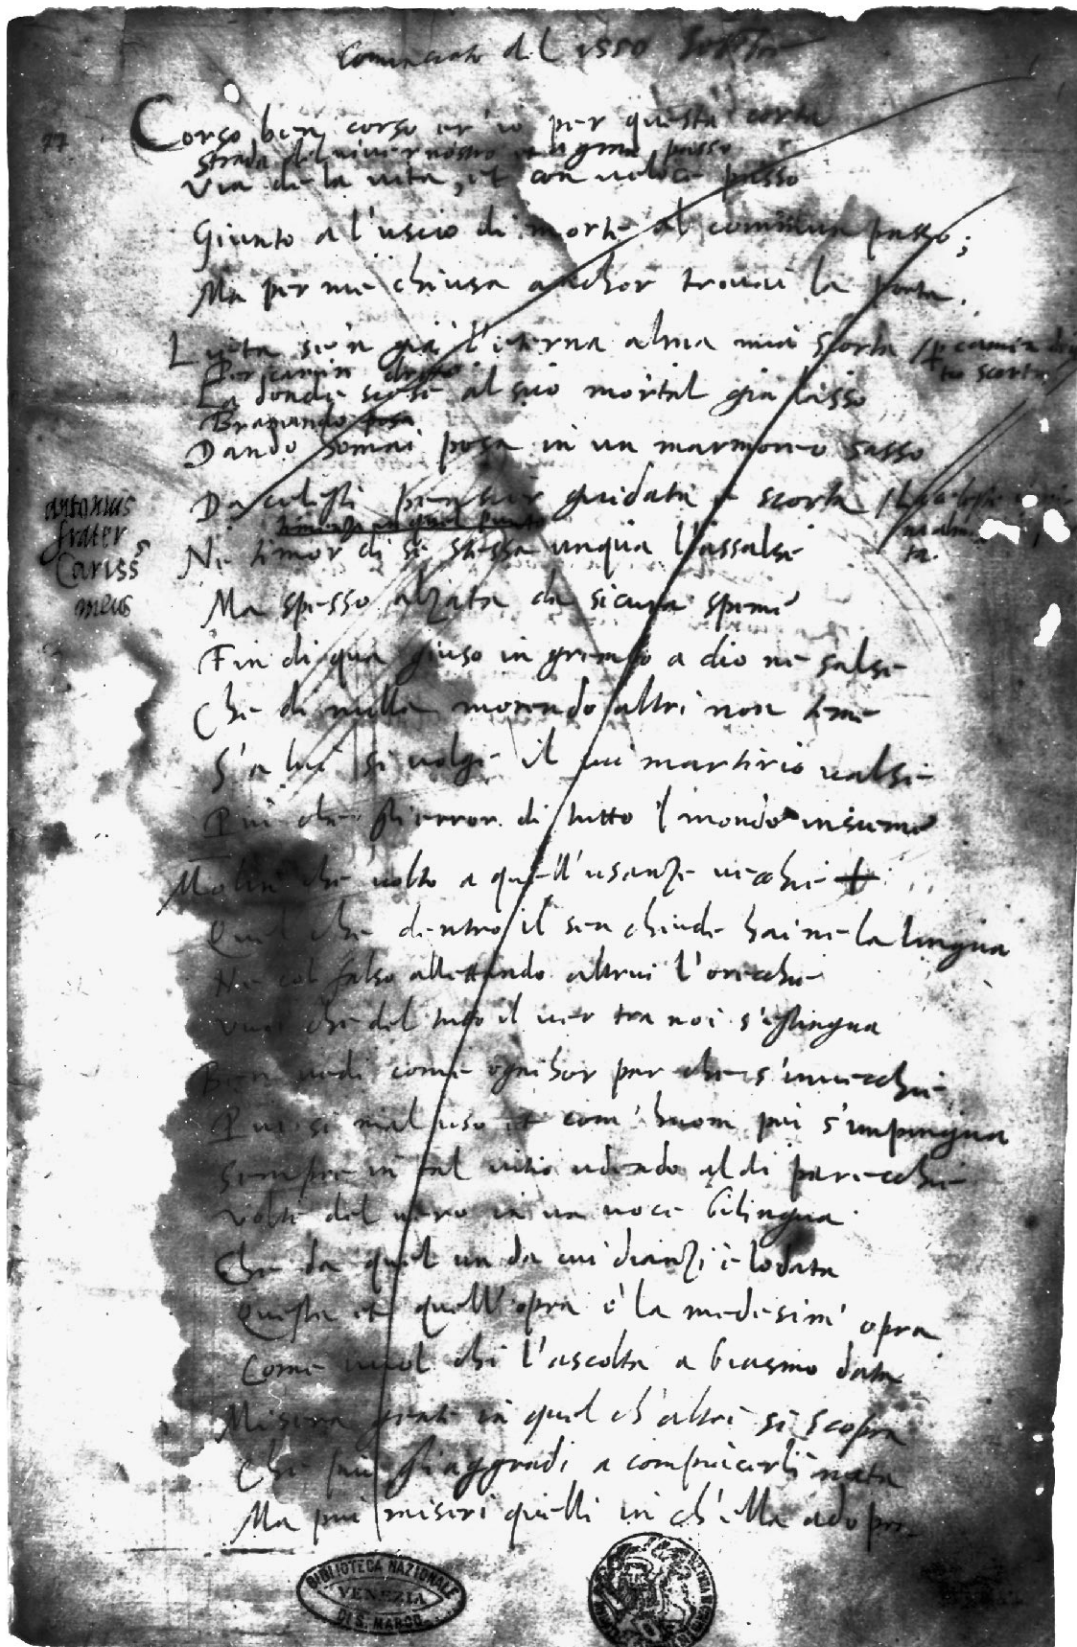 Cominciato del 1550
77
Corso ben corso er'io per questa corta
strada del viver nostro passo
Via de la vita, et con veloce passo
Giunto a l'uscio di morte al commun passo;
Ma per me chiusa anchor trovai la porta.
Lieta se'n già l'eterna alma mia scorta / camin
Per camin scorta
La donde scese al suo mortal già lasso
Bramando posa
Dando homai posa in un marmoreo sasso
antonius
frater
Cariss
meus
Da celesti pensier guidata e scorta
Ne timor di se stessa unqua l'assalse
Ma spesso alzata da sicura speme
Fin di qua giuso in grembo a dio ne salse
Che di nulla morendo altri non teme
S'a lui si volge il cui martirio valse
Più che gli error di tutto 'l mondo insieme
Molin che volto a quell'usanze vecchie
Quel che dentro il sen chiude hai ne la lingua
Ne col falso allettando altrui l'orecchie
Vuoi che del tutto il ver tra noi s'estingua
Ben vedi come ognihor per che s'invecchie
Più si mal uso et com' huom più s'impingua
Sempre in tal vitio udendo al di parecchie
Volte del vero in un voce bilingua
Che da quel un da cui dianzi è lodata
Questa et quell'opra è la medesim' opra
Come vuol chi l'ascolta a biasmo data
Misera gente in quel ch'altri si scopra
Che più gli aggradi a compiacerli nata
Ma più miseri quelli in ch'ella adopra
BIBLIOTECA NAZIONALE
VENEZIA
DI S. MARCO